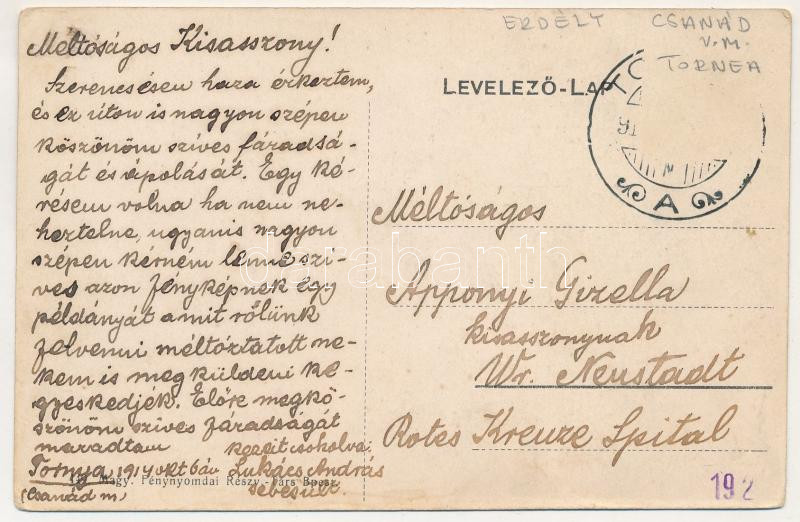 ERDÉLY
CSANÁD
V.M.
TORNEA
Méltóságos Kisasszony!
Szerencsésen haza érkeztem,
és ez úton is nagyon szépen
köszönöm szíves fáradsá-
gát és ápolását. Egy ké-
résem volna ha nem ne-
heztelne, ugyanis nagyon
szépen kérném lenne szi-
ves azon fényképnek egy
példányát amit rólunk
felvenni méltóztatott ne-
kem is megküldeni ke-
gyeskedjék. Előre megkö-
szönöm szíves fáradságát
maradtam kezeit csokolva:
Tornya, 1914 okt 6án Lukács András
(Csanád m) sebesült.
Magy. Fénynyomdai Részv.-Társ Bpest
LEVELEZŐ-LAP
TO
91
A
Méltóságos
Apponyi Gizella
kisasszonynak
Wr. Neustadt
Rotes Kreuze Spital
192
darabanth